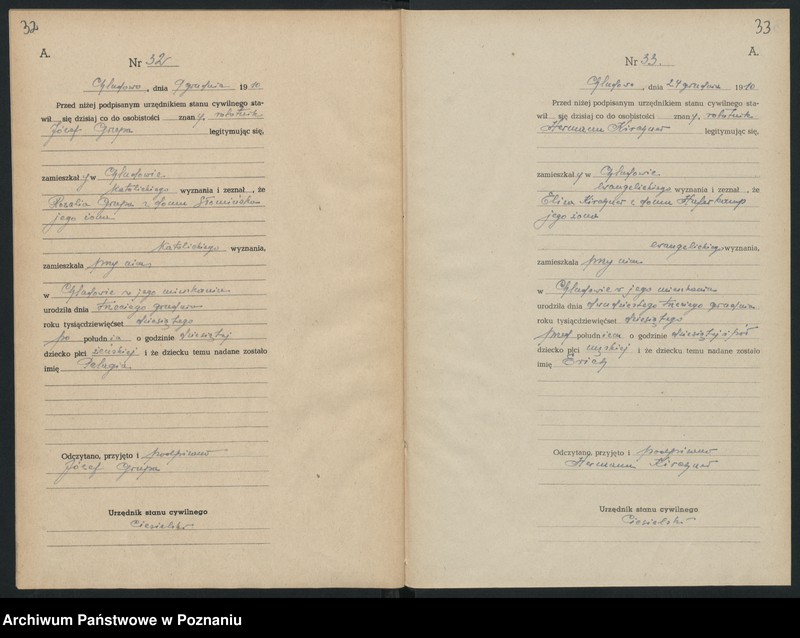 32
A.
Nr 32
, dnia 9 grudnia 1910
Przed niżej podpisanym urzędnikiem stanu cywilnego sta-
wił się dzisiaj co do osobistości znany, robotnik
Józef Grupa legitymując się,
zamieszkały w
katolickiego wyznania i zeznał , że
Rozalia Grupa z domu
jego żona
katolickiego wyznania,
zamieszkała przy nim,
w w jego mieszkaniu
urodziła dnia trzeciego grudnia
roku tysiącdziewięćset dziesiątego
po południu o godzinie dziesiątej
dziecko płci żeńskiej i że dziecku temu nadane zostało
imię Pelagia
Odczytano, przyjęto i podpisano
Józef Grupa
Urzędnik stanu cywilnego
Ciesielski
33
A.
Nr 33.
, dnia 24 grudnia 1910
Przed niżej podpisanym urzędnikiem stanu cywilnego sta-
wił się dzisiaj co do osobistości znany, robotnik
Hermann legitymując się,
zamieszkały w
ewangelickiego wyznania i zeznał , że
z domu Haferkamp
jego żona
ewangelickiego wyznania,
zamieszkała przy nim
w w jego mieszkaniu
urodziła dnia dwudziestego trzeciego grudnia
roku tysiącdziewięćset dziesiątego
przed południem o godzinie dziesiątej i pół
dziecko płci męskiej i że dziecku temu nadane zostało
imię
Odczytano, przyjęto i podpisano
Hermann
Urzędnik stanu cywilnego
Ciesielski
Archiwum Państwowe w Poznaniu